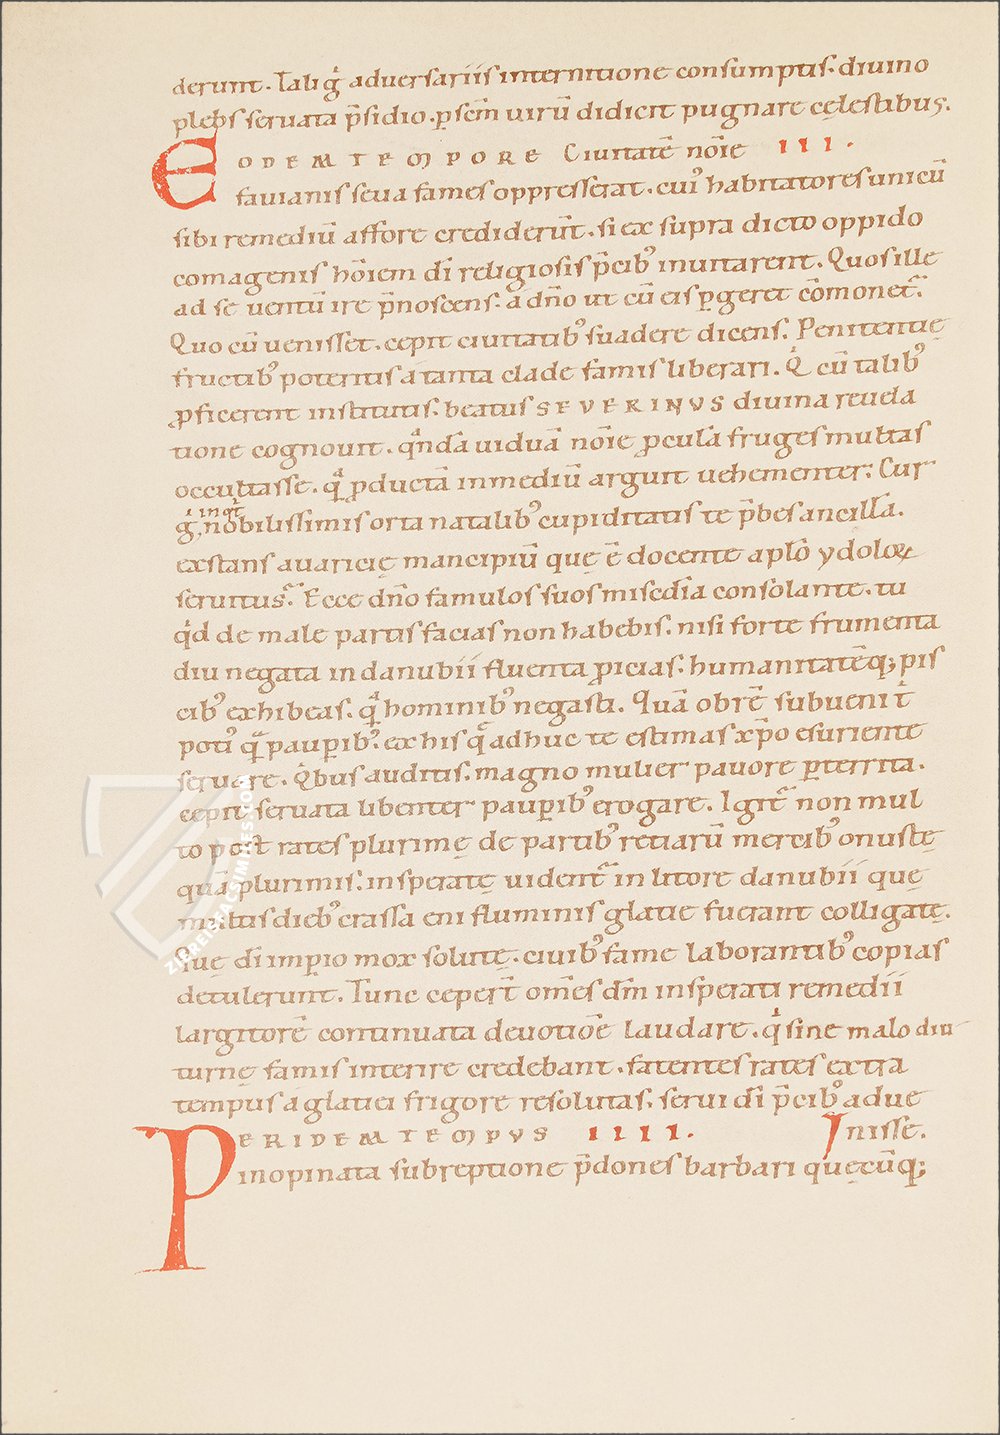 derunt. Tali g̊ aduersariis internitione consumptis. diuino
plebs seruata p̄sidio. p sc̄m uirū didicit pugnare cęlestibus.
EODEM TEMPORE Ciuitatē nōie III.
fauianis seua fames oppresserat. cuiꝰ habitatores unicū
sibi remediū affore crediderūt. si ex supra dicto oppido
comagenis hōiem dī religiosis p̄cibꝰ inuitarent. Quos ille
ad se uentū ire p̄noscens. a dn̄o ut cū eis ꝑgeret cōmonet᷑.
Quo cū uenisset. cepit ciuitatibꝰ suadere dicens. Penitentię
fructibꝰ poteritis a tanta clade famis liberari. Qͥ cū talibꝰ
ꝓficerent institutis. beatus SEVERINVS diuina reuela
tione cognouit. qͣndā uiduā nōīe ꝓculā fruges multas
occultasse. qͣ ꝓductā in mediū arguit uehementer. Cur
inqͥt
gͥ, nobilissimis orta natalibꝰ cupiditatis te p̄bes ancillā.
exstans auaricię mancipiū quę ē docente aplō ydoloꝝ
seruitus. Ecce dn̄o famulos suos misedīa consolante. tu
qͥd de male partis facias non habebis. nisi forte frumenta
diu negata in danubii fluenta ꝓicias. humanitatēq; pis
cibꝰ exhibeas. qͣ hominibꝰ negasti. Quā obrē subuenit̄
potiꝰ qͣ pauꝑibꝰ. ex his qͣ adhuc te estimas xp̄o esuriente
seruare. Qͥbus auditis. magno mulier pauore ꝑterrita.
cepit seruata libenter pauꝑibꝰ erogare. Igit᷑ non mul
to post rates plurimę de partibꝰ retiarū mercibꝰ onustę
quā plurimis. insperatę uident᷑ in litore danubii quę
multis diebꝰ crassa eni fluminis glatie fuerant colligatę.
Quę dī imꝑio mox solutę. ciuibꝰ fame laborantibꝰ copias
detulerunt. Tunc ceper̄t om̄es dm̄ insperati remedii
largitorē continuata deuotiōe laudare. qͥ sine malo diu
turnę famis interire credebant. fatentes rates extra
tempus a glatiei frigore resolutas. serui dī p̄cibꝰ adue
PER IDEM TEMPVS IIII. Inisse.
inopinata subreptione p̄dones barbari quęcūq;
ziereisfacsimiles.com